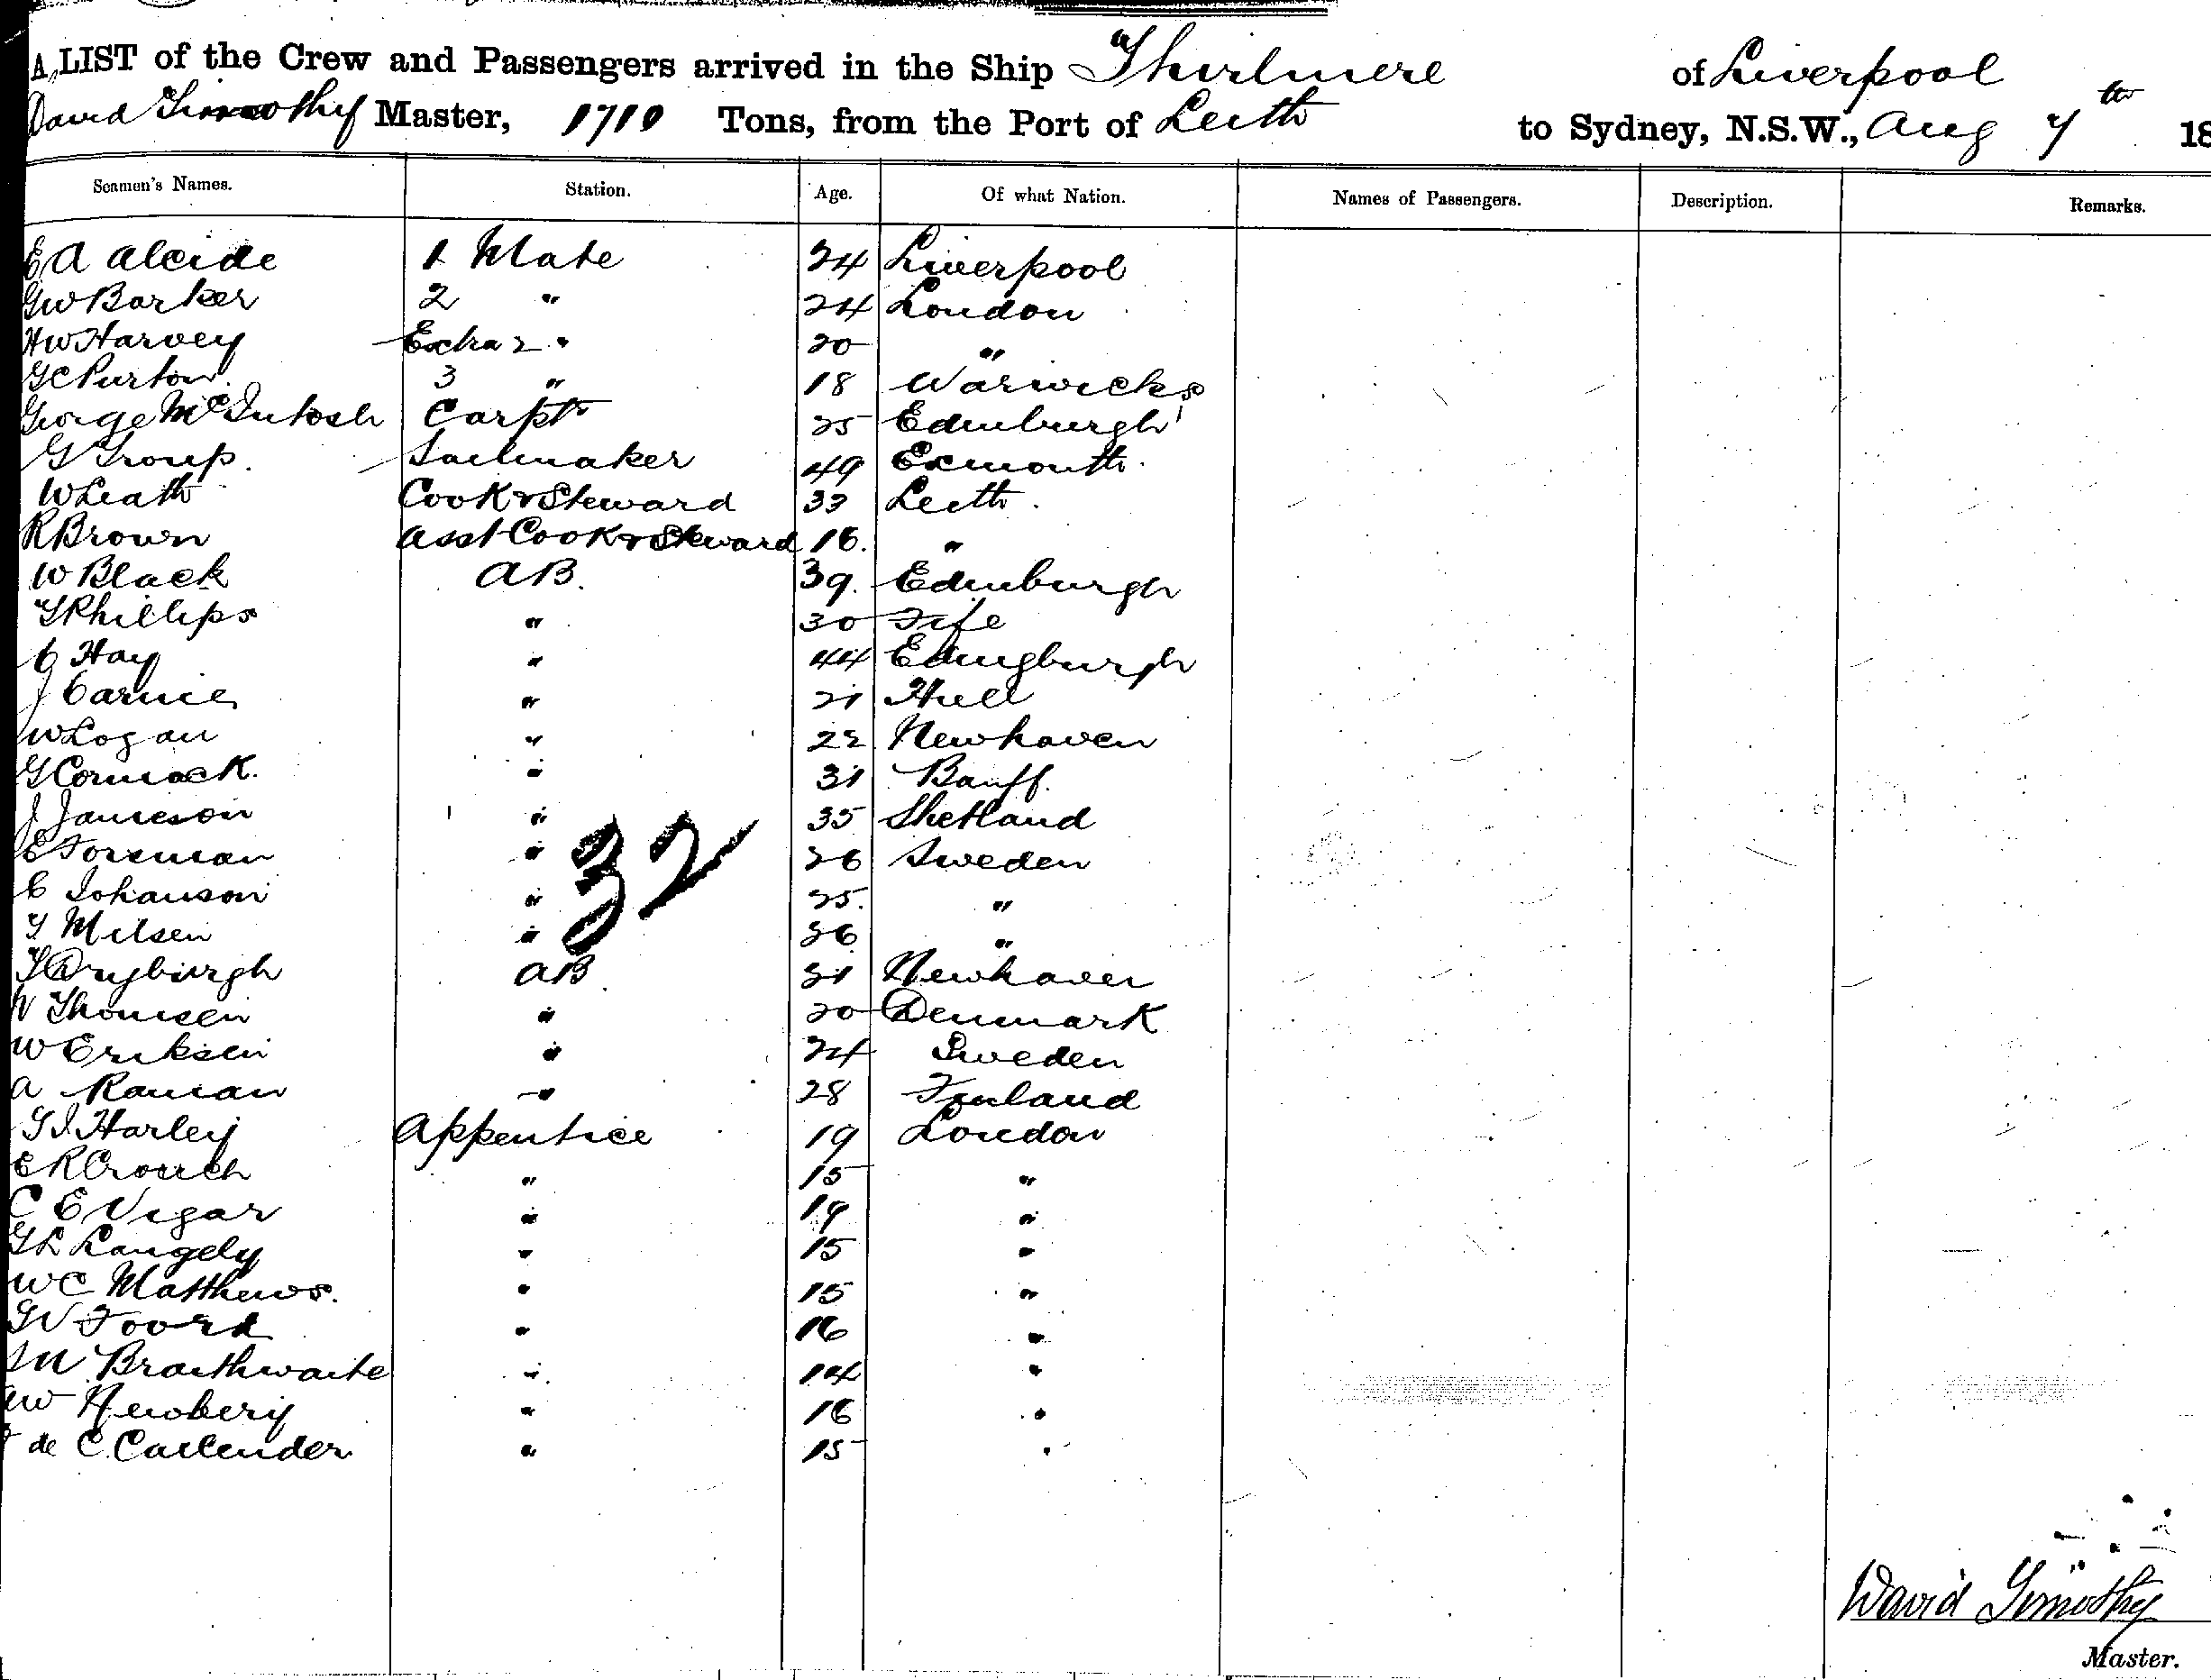 A LIST of the Crew and Passengers arrived in the Ship Thirlmere of Liverpool
David Timothy Master, 1710 Tons, from the Port of Leith to Sydney, N.S.W., Aug 7th 18
Seamen's Names. Station. Age. Of what Nation. Names of Passengers. Description. Remarks.
E A Alcide 1 Mate 24 Liverpool
G W Barker 2 " 24 London
H W Harvey Extra 2 " 20 "
G C Purton. 3 " 18 Warwicks
George McIntosh Carptr 25 Edenburgh
G Troup. Sailmaker 49 Exmouth.
W Leath Cook & Steward 33 Leith.
R Brown Asst Cook & Steward 16. "
W Black AB. 39. Edenburgh
T Phillips " 30 Fife
C Hay " 44 Edingburgh
J Carnie " 21 Hull
W Logan " 22 Newhaven
G Cormack. " 31 Banff.
J Jameson " 35 Shetland
E Foreman " 26 Sweden
32
C Johanson " 25. "
T Milsen " 26 "
T Dryburgh AB 21 Newhaven
N Thomsen " 20 Denmark
W Eriksen " 24 Sweden
A Raman " 28 Finland
G J Harley Appentice 19 London
E R Crouch " 15 "
C E Vigar " 19 "
G L Langely " 15 "
W C Matthews. " 15 "
G V Foord " 16 "
J M Braithwaite " 14 "
A W Newbery " 16 "
de C. Callender " 15 "
David Timothy
Master.